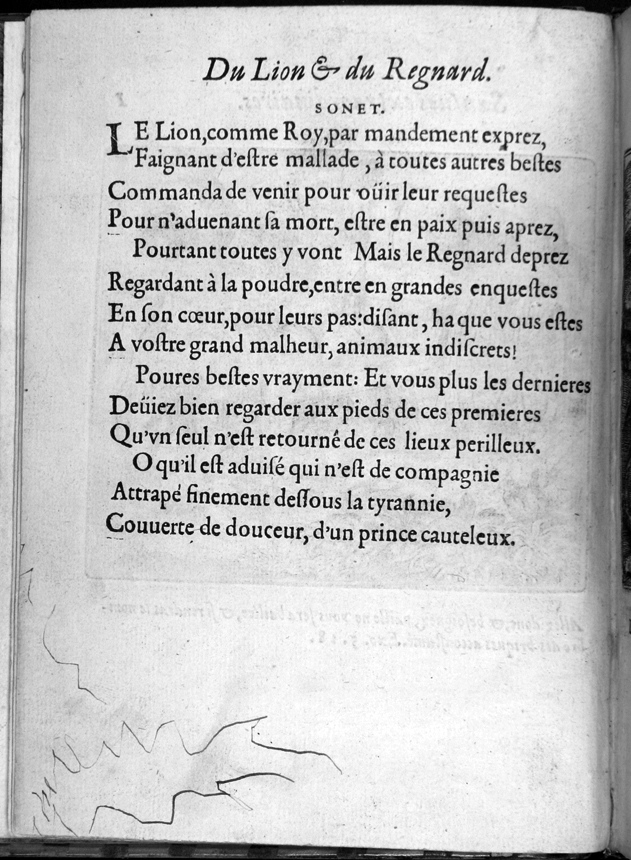 Du Lion & du Regnard.
SONET.
LE Lion,comme Roy,par mandement exprez,
Faignant d'eſtre mallade , à toutes autres beſtes
Commanda de venir pour oüir leur requeſtes
Pour n'aduenant ſa mort, eſtre en paix puis aprez,
Pourtant toutes y vont Mais le Regnard deprez
Regardant à la poudre,entre en grandes enqueſtes
En ſon cœur,pour leurs pas:diſant , ha que vous eſtes
A voſtre grand malheur, animaux indiſcrets!
Poures beſtes vrayment: Et vous plus les dernieres
Deüiez bien regarder aux pieds de ces premieres
Qu'vn ſeul n'eſt retourné de ces lieux perilleux.
O qu'il eſt aduiſé qui n'eſt de compagnie
Attrapé finement deſſous la tyrannie,
Couuerte de douceur, d'un prince cauteleux.